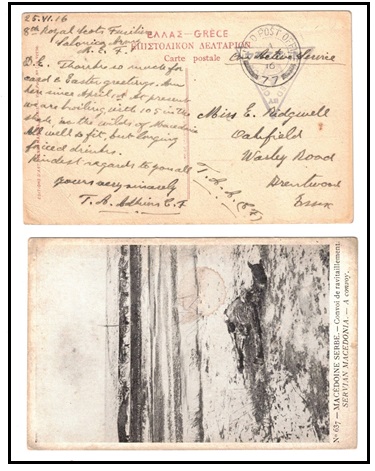 25.VI.16
8th Royal Scots Fusiliers
Salonica Army
ΕΛΛΑΣ-GRÈCE
ΕΠΙΣΤΟΛΙΚΟΝ ΔΕΛΤΑΡΙΟΝ
Carte postale
On Active Service
FIELD POST OFFICE
16
77
D.E. Thanks so much for
card & Easter greetings. Am
here since April 1st. At present
we are boiling with 105 in the
shade in the wilds of Macedonia
All well & fit, but longing
for iced drinks.
Kindest regards to you all
yours very sincerely
T. R. Adkins C.F.
Miss E. Ridgwell
Oakfield
Warley Road
Brentwood
Essex
T.R.A. (C.F.)
No 637 — MACÉDOINE SERBE. — Convoi de ravitaillement.
SERVIAN MACEDONIA. — A convoy.